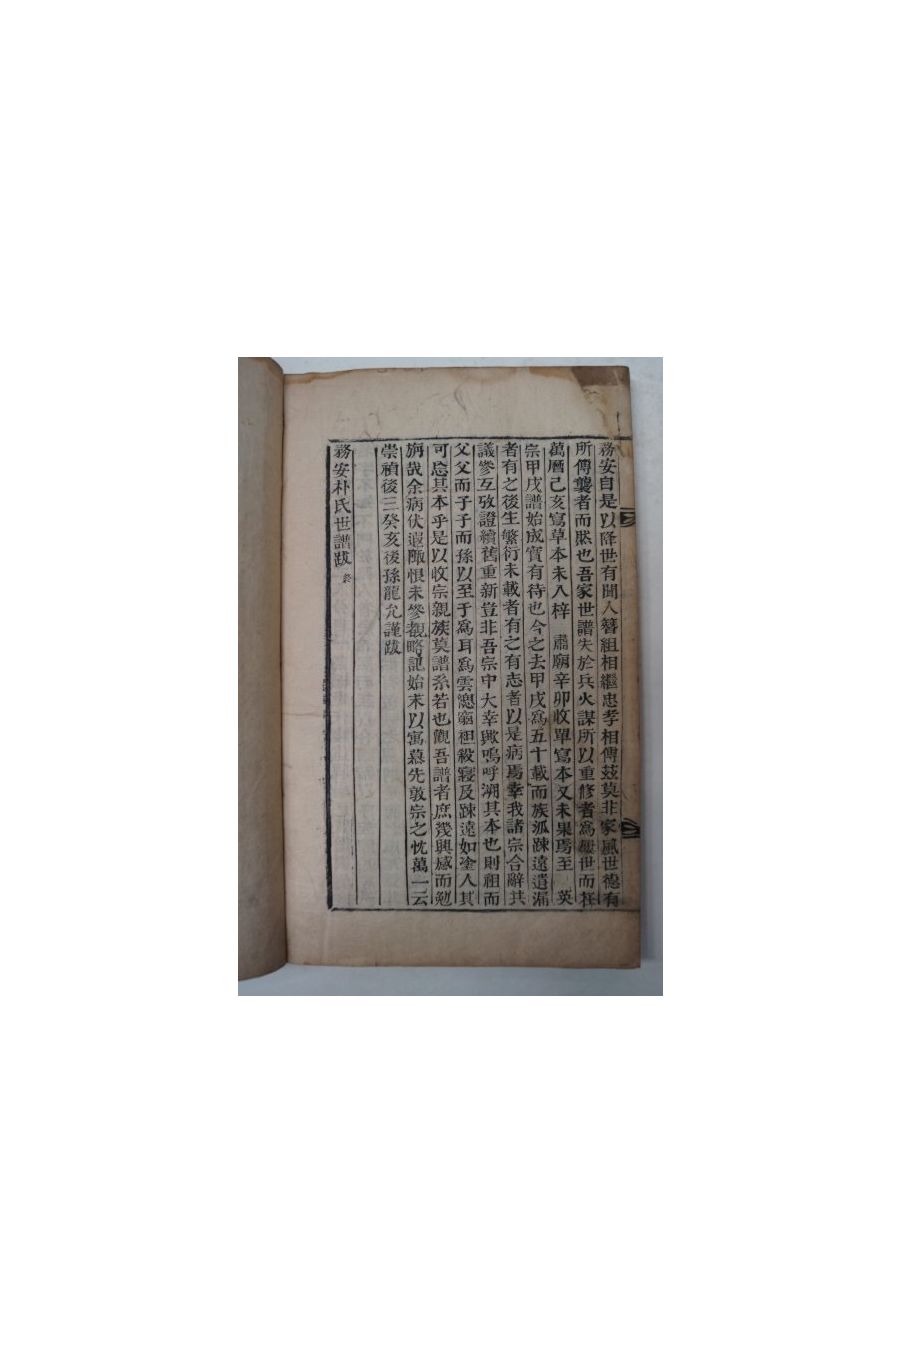 務安自是以降世有聞人簪組相繼忠孝相傳玆莫非家風世德有
所傳襲者而然也吾家世譜失於兵火謀所以重修者爲屢世而在
萬曆己亥寫草本未入梓 肅廟辛卯收單寫本又未果焉至 英
宗甲戌譜始成實有待也今之去甲戌爲五十載而族派踈遠遺漏
者有之後生繁衍未載者有之有志者以是病焉幸我諸宗合辭共
議參互攷證續舊重新豈非吾宗中大幸歟嗚呼溯其本也則祖而
父父而子子而孫以至于爲耳爲雲緦窮袒殺寢及踈遠如塗人其
可忘其本乎是以收宗親族莫譜系若也觀吾譜者庶幾興感而勉
旃哉余病伏遐陬恨未參觀略記始末以寓慕先敦宗之忱萬一云
崇禎後三癸亥後孫龍允謹跋
務安朴氏世譜跋 終